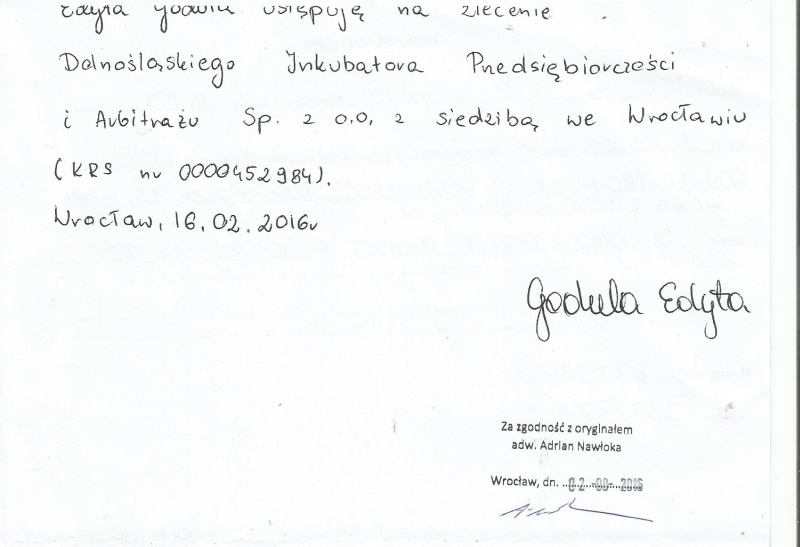 Edyta Godula ustępuję na zlecenie
Dolnośląskiego Inkubatora Przedsiębiorczości
i Arbitrażu Sp. z o.o. z siedzibą we Wrocławiu
(KRS nr 0000452984).
Wrocław, 16.02.2016r
Godula Edyta
Za zgodność z oryginałem
adw. Adrian Nawłoka
Wrocław, dn.